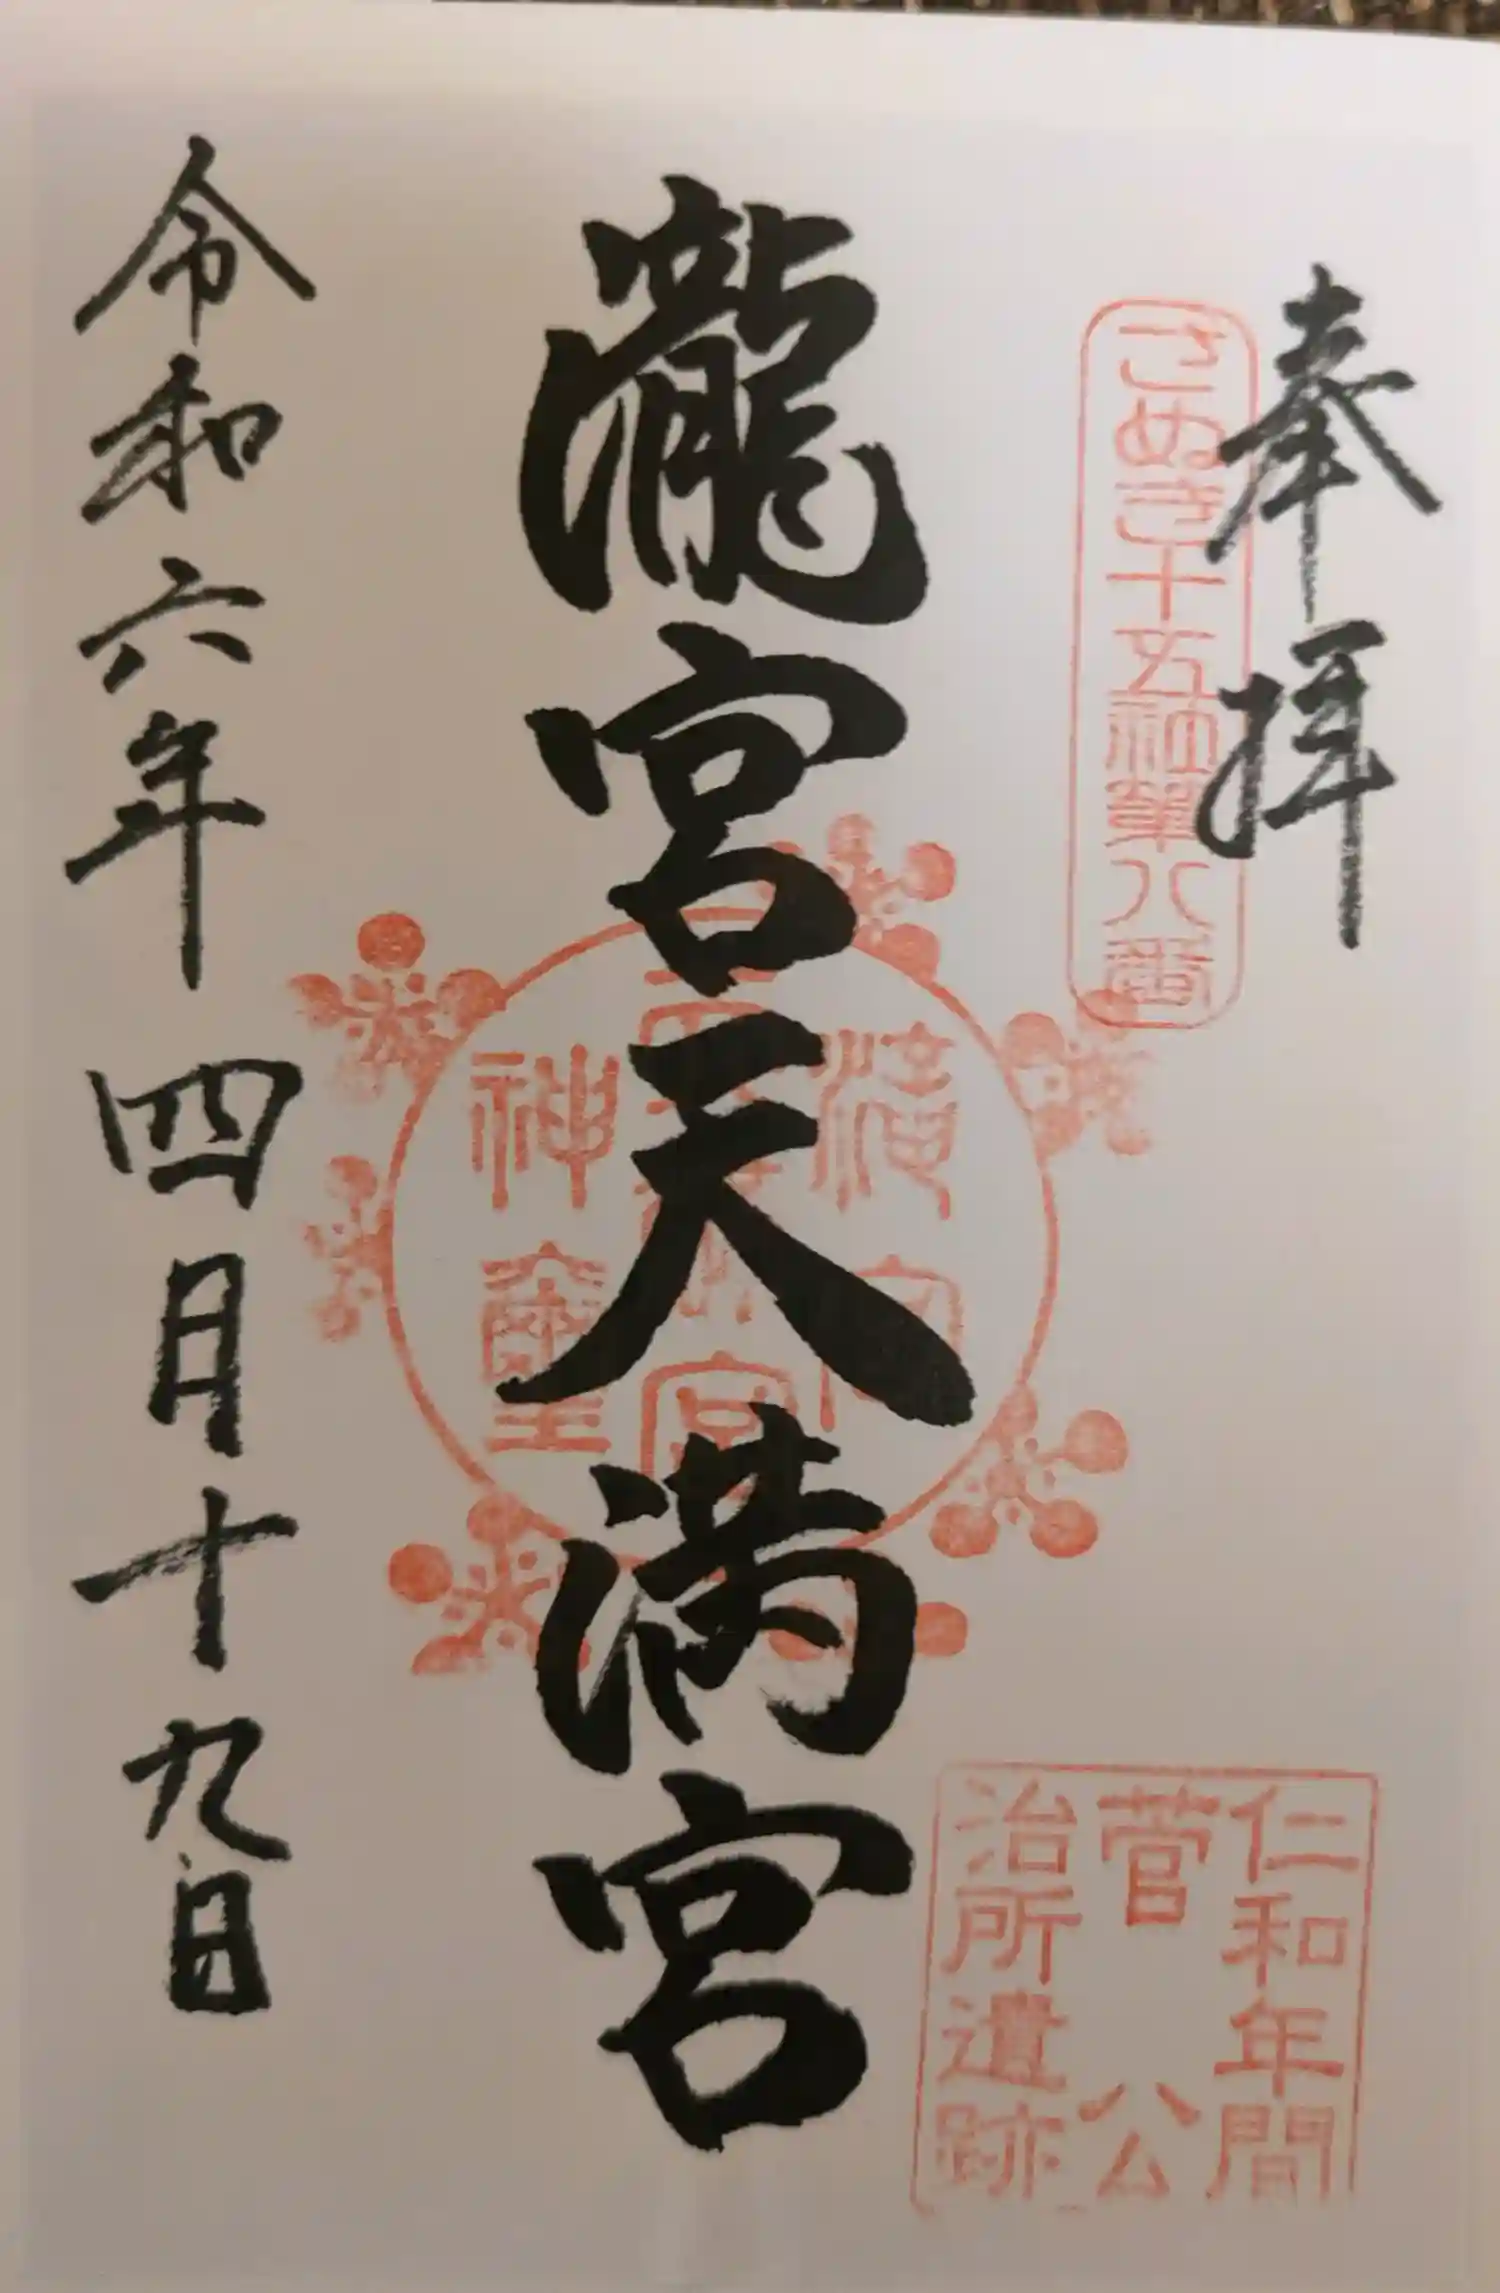 奉拝
さぬき十五社第八番
瀧宮天満宮
滝宮
天満宮
神璽
仁和年間
菅公
治所遺跡
令和六年四月十九日